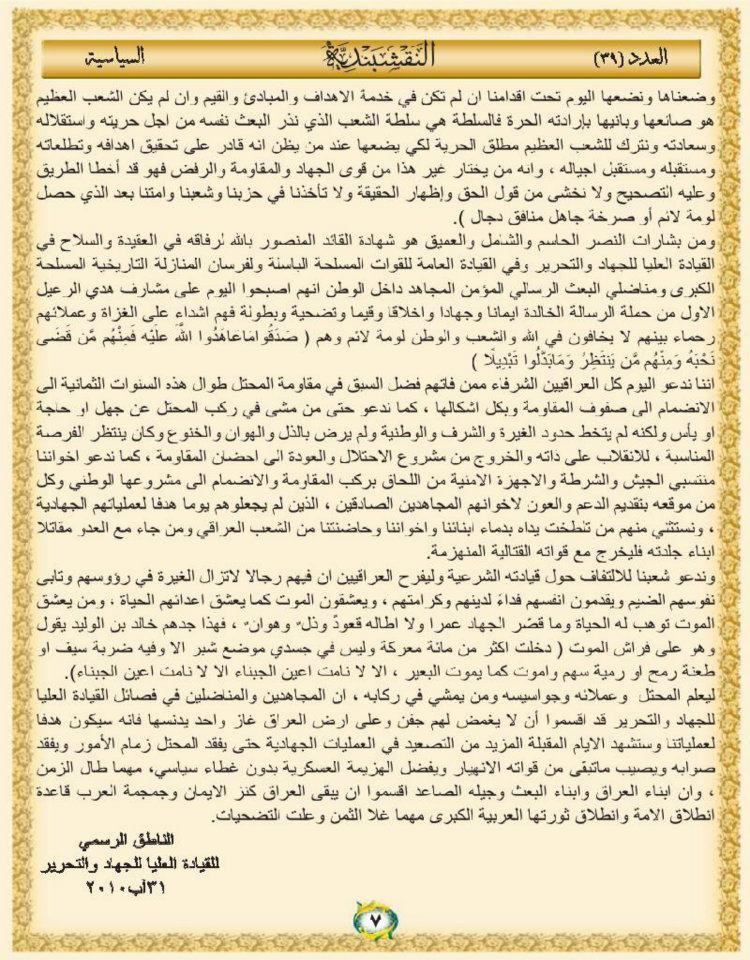 العدد (٣٩) النقشبندية السياسية
وضعناها ونضعها اليوم تحت اقدامنا ان لم تكن في خدمة الاهداف والمبادئ والقيم وان لم يكن الشعب العظيم
هو صانعها وبانيها بإرادته الحرة فالسلطة هي سلطة الشعب الذي نذر البعث نفسه من اجل حريته واستقلاله
وسعادته ونترك للشعب العظيم مطلق الحرية لكي يضعها عند من يظن انه قادر على تحقيق اهدافه وتطلعاته
ومستقبله ومستقبل اجياله ، وانه من يختار غير هذا من قوى الجهاد والمقاومة والرفض فهو قد أخطا الطريق
وعليه التصحيح ولا نخشى من قول الحق وإظهار الحقيقة ولا تأخذنا في حزبنا وشعبنا وامتنا بعد الذي حصل
لومة لائم أو صرخة جاهل منافق دجال ).
ومن بشارات النصر الحاسم والشامل والعميق هو شهادة القائد المنصور بالله لرفاقه في العقيدة والسلاح في
القيادة العليا للجهاد والتحرير وفي القيادة العامة للقوات المسلحة الباسلة ولفرسان المنازلة التاريخية المسلحة
الكبرى ومناضلي البعث الرسالي المؤمن المجاهد داخل الوطن انهم اصبحوا اليوم على مشارف هدي الرعيل
الاول من حملة الرسالة الخالدة ايمانا وجهادا واخلاقا وقيما وتضحية وبطولة فهم اشداء على الغزاة وعملائهم
رحماء بينهم لا يخافون في الله والشعب والوطن لومة لائم وهم ( صَدَقُوا مَاعَاهَدُوا اللَّهَ عَلَيْه فَمِنْهُم مَّن قَضَى
نَحْبَهُ وَمِنْهُم مَّن يَنتَظِرُ وَمَابَدَّلُوا تَبْدِيلًا )
اننا ندعو اليوم كل العراقيين الشرفاء ممن فاتهم فضل السبق في مقاومة المحتل طوال هذه السنوات الثمانية الى
الانضمام الى صفوف المقاومة وبكل اشكالها ، كما ندعو حتى من مشى في ركب المحتل عن جهل او حاجة
او يأس ولكنه لم يتخط حدود الغيرة والشرف والوطنية ولم يرض بالذل والهوان والخنوع وكان ينتظر الفرصة
المناسبة ، للانقلاب على ذاته والخروج من مشروع الاحتلال والعودة الى احضان المقاومة ، كما ندعو اخواننا
منتسبي الجيش والشرطة والاجهزة الامنية من اللحاق بركب المقاومة والانضمام الى مشروعها الوطني وكل
من موقعه بتقديم الدعم والعون لاخوانهم المجاهدين الصادقين ، الذين لم يجعلوهم يوما هدفا لعملياتهم الجهادية
، ونستثني منهم من تلطخت يداه بدماء ابنائنا واخواننا وحاضنتنا من الشعب العراقي ومن جاء مع العدو مقاتلا
ابناء جلدته فليخرج مع قواته القتالية المنهزمة.
وندعو شعبنا للالتفاف حول قيادته الشرعية وليفرح العراقيين ان فيهم رجالا لاتزال الغيرة في رؤوسهم وتابى
نفوسهم الضيم ويقدمون انفسهم فداءً لدينهم وكرامتهم ، ويعشقون الموت كما يعشق اعدائهم الحياة ، ومن يعشق
الموت توهب له الحياة وما قصّر الجهاد عمرا ولا اطاله قعودٌ وذلٌ وهوان ، فهذا جدهم خالد بن الوليد يقول
وهو على فراش الموت ( دخلت اكثر من مائة معركة وليس في جسدي موضع شبر الا وفيه ضربة سيف او
طعنة رمح او رمية سهم واموت كما يموت البعير ، الا لا نامت اعين الجبناء الا لا نامت اعين الجبناء).
ليعلم المحتل وعملائه وجواسيسه ومن يمشي في ركابه ، ان المجاهدين والمناضلين في فصائل القيادة العليا
للجهاد والتحرير قد اقسموا أن لا يغمض لهم جفن وعلى ارض العراق غاز واحد يدنسها فانه سيكون هدفا
لعملياتنا وستشهد الايام المقبلة المزيد من التصعيد في العمليات الجهادية حتى يفقد المحتل زمام الأمور ويفقد
صوابه ويصيب ماتبقى من قواته الانهيار ويفضل الهزيمة العسكرية بدون غطاء سياسي، مهما طال الزمن
، وان ابناء العراق وابناء البعث وجيله الصاعد اقسموا ان يبقى العراق كنز الايمان وجمجمة العرب قاعدة
انطلاق الامة وانطلاق ثورتها العربية الكبرى مهما غلا الثمن وعلت التضحيات.
الناطق الرسمي
للقيادة العليا للجهاد والتحرير
٣١آب٢٠١٠
٧